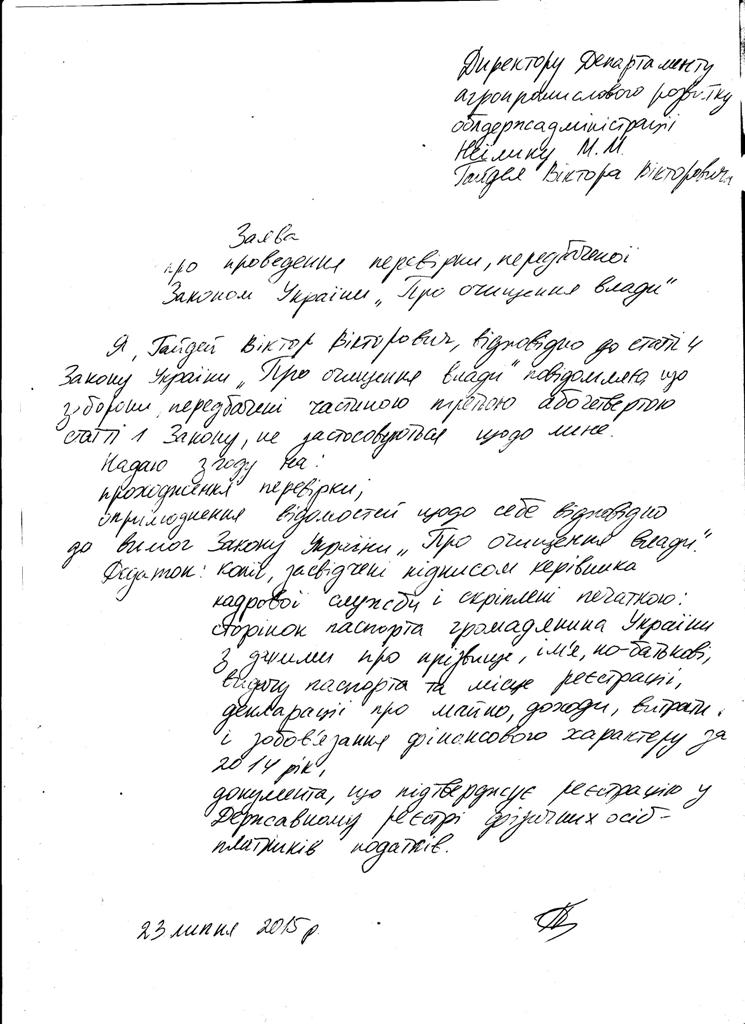 Директору Департаменту
агропромислового розвитку
облдержадміністрації
М.М.
Гайдея Віктора Вікторовича
Заява
про проведення перевірки, передбаченої
Законом України „Про очищення влади"
Я, Гайдей Віктор Вікторович, відповідно до статті 4
Закону України „Про очищення влади" повідомляю, що
заборони, передбачені частиною третьою або четвертою
статті 1 Закону, не застосовуються щодо мене.
Надаю згоду на:
проходження перевірки;
оприлюднення відомостей щодо себе відповідно
до вимог Закону України „Про очищення влади".
Додаток: копії, засвідчені підписом керівника
кадрової служби і скріплені печаткою:
сторінок паспорта громадянина України
з даними про прізвище, ім'я, по-батькові,
видачу паспорта та місце реєстрації,
декларації про майно, доходи, витрати
і зобов'язання фінансового характеру за
2014 рік,
документа, що підтверджує реєстрацію у
Державному реєстрі фізичних осіб-
платників податків.
23 липня 2015 р.